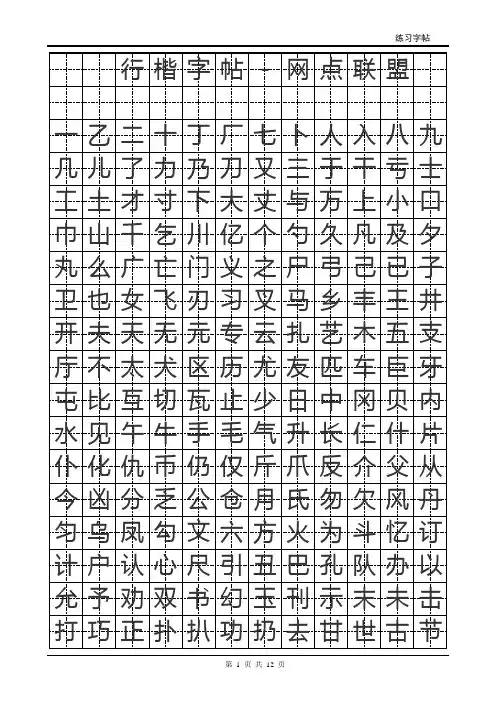 练习字帖
行楷字帖-网点联盟
一乙二十丁厂七卜人入八九
几儿了力乃刀又三于干亏士
工土才寸下大丈与万上小口
巾山千乞川亿个勺久凡及夕
丸么广亡门义之尸弓己已子
卫也女飞刃习叉马乡丰王井
开夫天无元专云扎艺木五支
厅不太犬区历尤友匹车巨牙
屯比互切瓦止少日中冈贝内
水见午牛手毛气升长仁什片
仆化仇币仍仅斤爪反介父从
今凶分乏公仓月氏勿欠风丹
匀乌凤勾文六方火为斗忆订
计户认心尺引丑巴孔队办以
允予劝双书幻玉刊示末未击
打巧正扑扒功扔去甘世古节
第 1 页 共 12 页